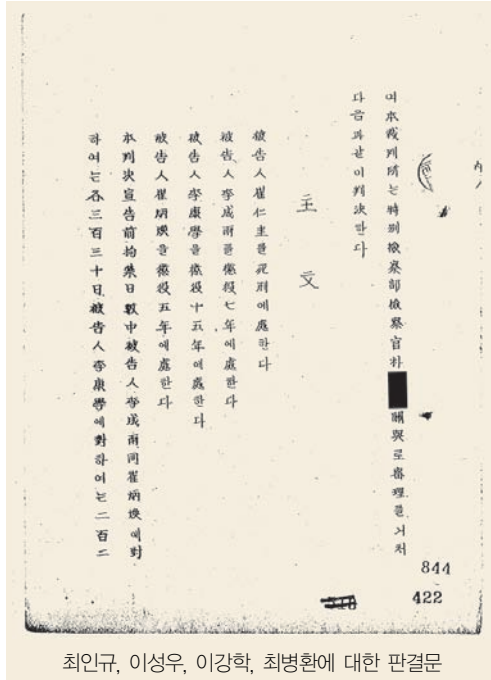 여本裁判所는特別檢察部檢察官朴 關與로審理를거처
다음과같이判決한다
主文
被告人崔仁圭를死刑에處한다
被告人李成雨를懲役七年에處한다
被告人李康學을懲役十五年에處한다
被告人崔炳煥을懲役五年에處한다
本判決宣告前拘禁日數中被告人李成雨同崔炳煥에對
하여는各三百三十日被告人李康學에對하여는二百二
844
422
최인규, 이성우, 이강학, 최병환에 대한 판결문